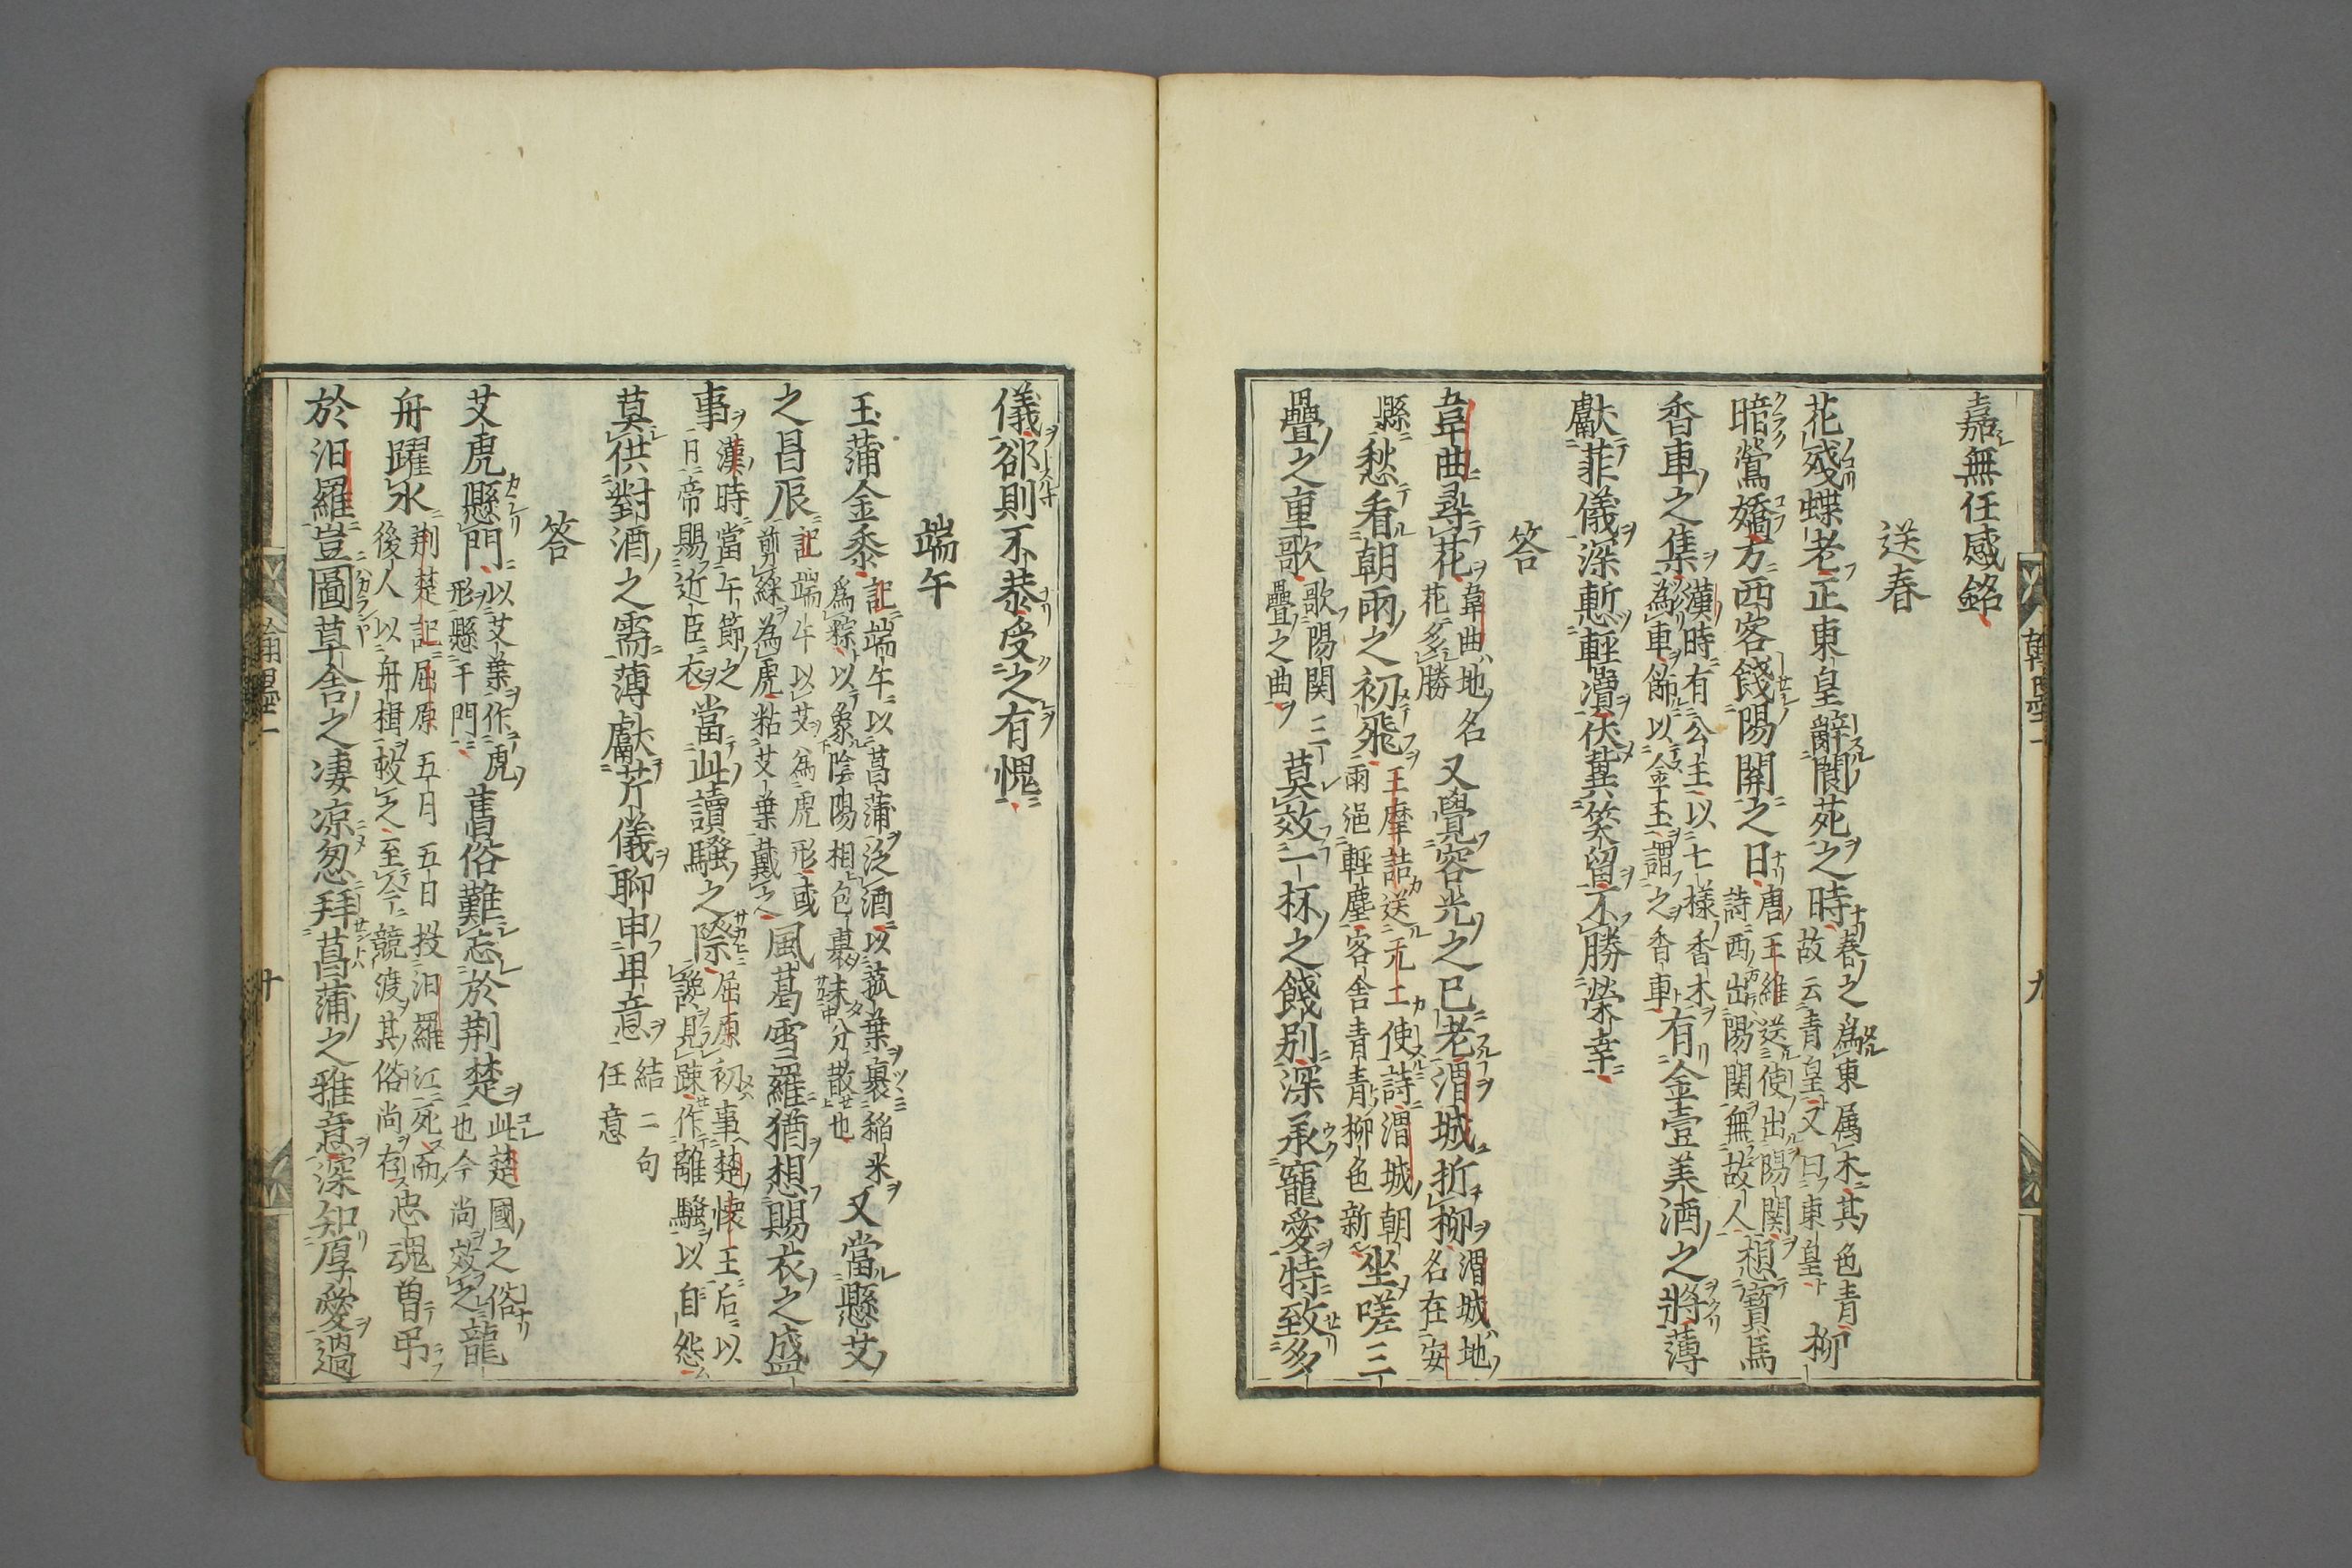 嘉無任感銘
送春
花殘蝶老正東皇辭閬苑之時春之為東属木其色青
故云青皇又曰東皇柳
暗鶯嬌方西客餞陽關之日唐王維送使出陽関
詩西出陽関無故人想寳馬
香車之集漢時有公主以七様香木
為車飾以金玉謂之香車有金壹美酒之將薄
獻菲儀深慙輕瀆伏冀笑留不勝榮幸
答
韋曲尋花韋曲地名
花多勝又覺容光之已老渭城折柳渭城地
名在安
縣愁看朝雨之初飛王摩詰送元二使詩渭城朝
雨浥輕塵客舎青青柳色新坐嗟三
疊之重歌歌陽関三
疊之曲莫效一杯之餞別深承寵愛特致多
儀郤則不恭受之有愧
端午
玉蒲金黍記端午以菖蒲泛酒以菰葉裹稲米
為粽以象陰陽相包裹未分散也又當懸艾
之昌辰記端午以艾為虎形或
剪綵為虎粘艾葉戴之風葛雪羅猶想賜衣之盛
事漢時當午節之
日帝賜近臣衣當此讀騷之際屈原初事楚懐王后以
讒見疎作離騷以自怨
莫供對酒之需薄獻芹儀聊申卑意結二句
任意
答
艾虎懸門以艾葉作虎
形懸千門舊俗難忘於荆楚此楚國之俗
也今尚效之龍
舟躍水荆楚記屈原五月五日投汨羅江死而
後人以舟楫救之至今競渡其俗尚存忠魂曽弔
於汨羅豈圖草舎之凄凉忽拜菖蒲之雅意深知厚愛過